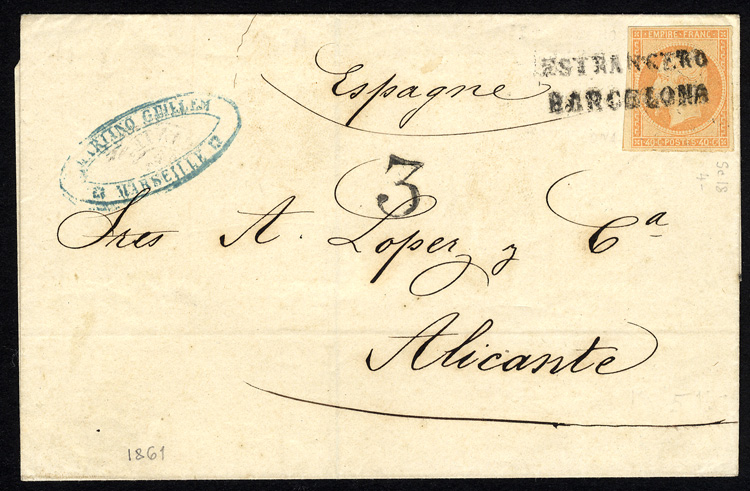 EMPIRE FRANC
ESTRANGERO
BARCELONA
40·C·POSTES·40·C·
Espagne
MARTINO GUILLEM
MARSEILLE
3
Sres A. Lopez y Cª
Alicante
Se 18
4-
1861